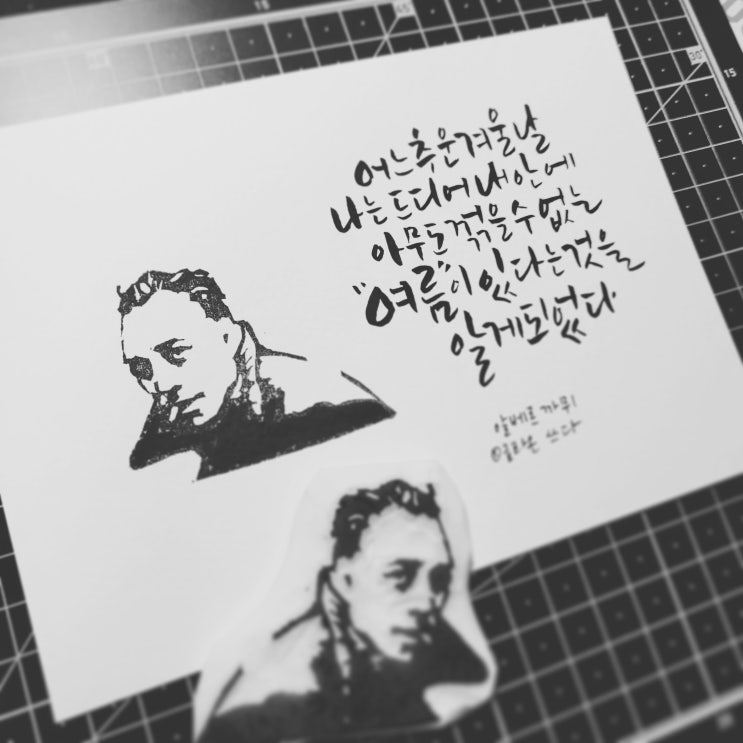 어느 추운 겨울날
나는 드디어 내 안에
아무도 꺾을 수 없는
"여름"이 있다는 것을
알게 되었다.
알베르 까뮈
쓰다
15
15